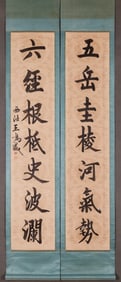 五岳圭棱河氣勢
六經根柢史波瀾